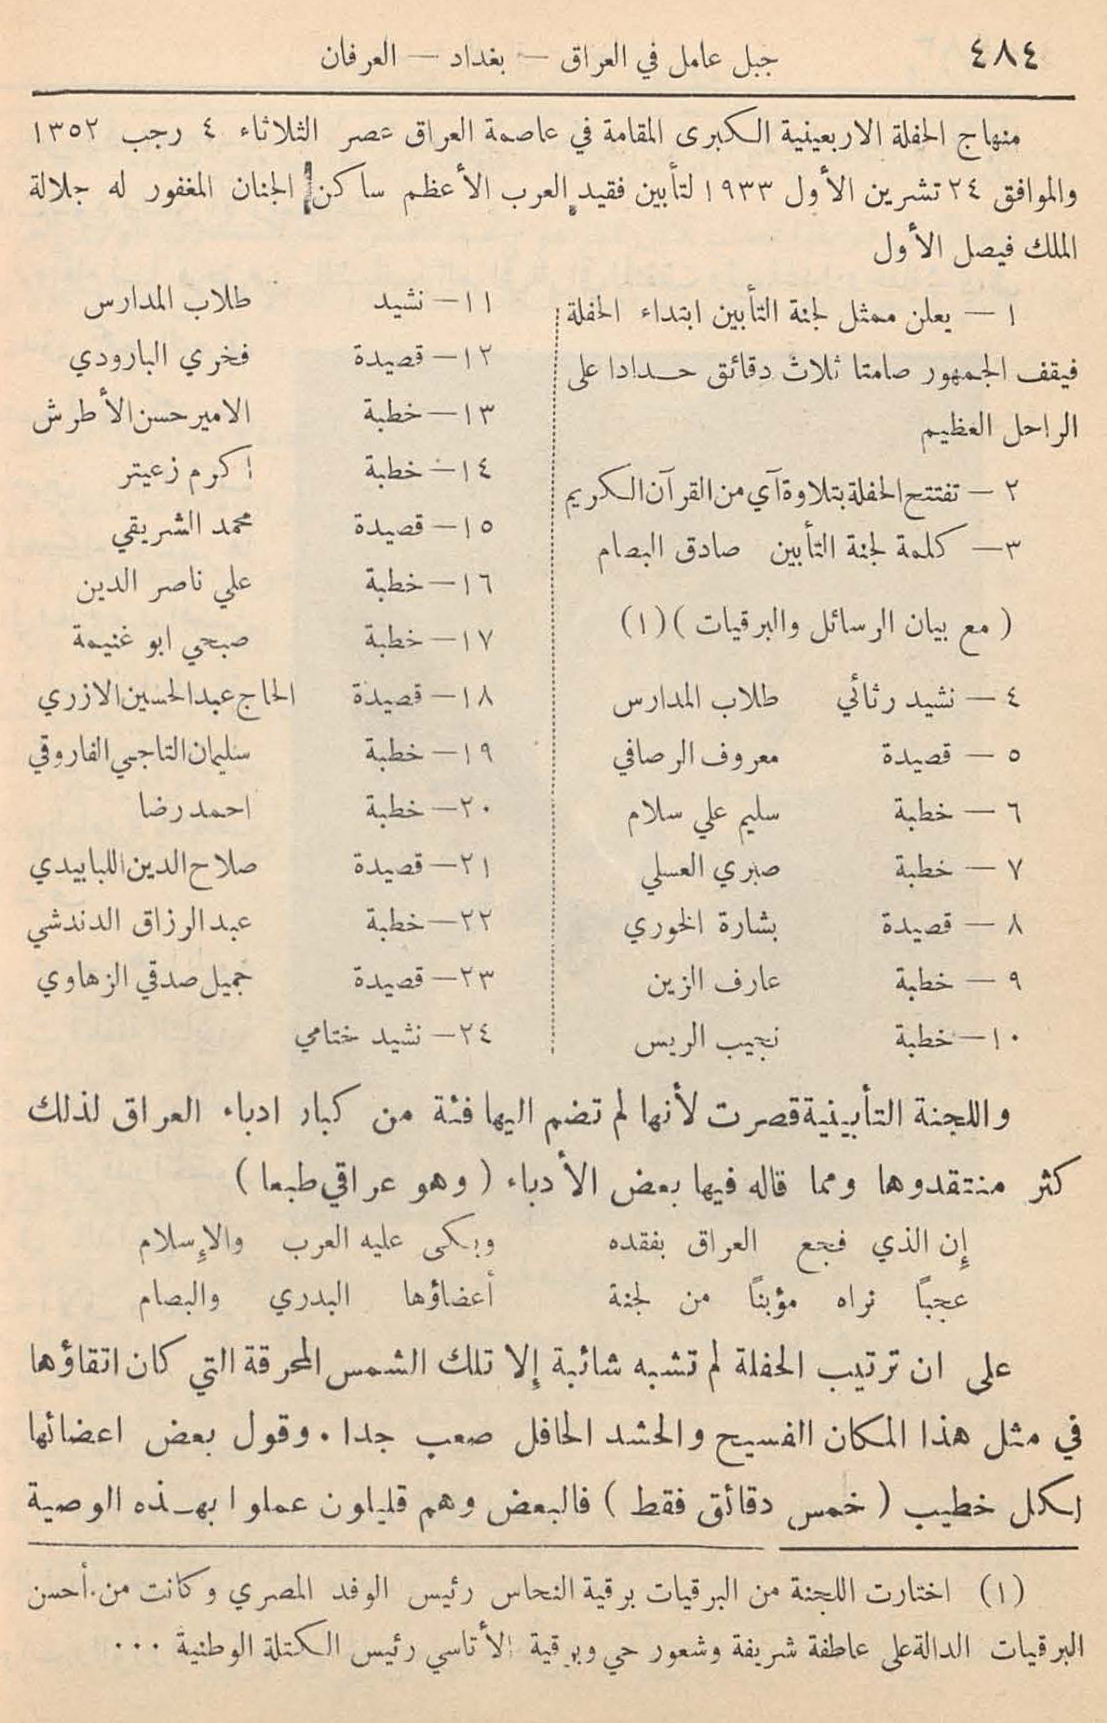 ٤٨٤
جبل عامل في العراق — بغداد — العرفان
منهاج الحفلة الاربعينية الكبرى المقامة في عاصمة العراق عصر الثلاثاء ٤ رجب ١٣٥٢
والموافق ٢٤ تشرين الأول ١٩٣٣ لتأبين فقيد العرب الأعظم ساكن الجنان المغفور له جلالة
الملك فيصل الأول
١ — يعلن ممثل لجنة التأبين ابتداء الحفلة
فيقف الجمهور صامتا ثلاث دقائق حدادا على
الراحل العظيم
٢ — تفتتح الحفلة بتلاوة آي من القرآن الكريم
٣ — كلمة لجنة التأبين صادق البصام
( مع بيان الرسائل والبرقيات ) (١)
٤ — نشيد رثائي طلاب المدارس
٥ — قصيدة معروف الرصافي
٦ — خطبة سليم علي سلام
٧ — خطبة صبري العسلي
٨ — قصيدة بشارة الخوري
٩ — خطبة عارف الزين
١٠— خطبة نجيب الريس
١١— نشيد طلاب المدارس
١٢— قصيدة فخري البارودي
١٣— خطبة الامير حسن الأطرش
١٤— خطبة اكرم زعيتر
١٥— قصيدة محمد الشريقي
١٦— خطبة علي ناصر الدين
١٧— خطبة صبحي ابو غنيمة
١٨— قصيدة الحاج عبد الحسين الازري
١٩— خطبة سليمان التاجي الفاروقي
٢٠— خطبة احمد رضا
٢١— قصيدة صلاح الدين اللبابيدي
٢٢— خطبة عبد الرزاق الدندشي
٢٣— قصيدة جميل صدقي الزهاوي
٢٤— نشيد ختامي
واللجنة التأبينية قصرت لأنها لم تضم اليها فئة من كبار ادباء العراق لذلك
كثر منتقدوها ومما قاله فيها بعض الأدباء ( وهو عراقي طبعا )
إن الذي فجع العراق بفقده وبكى عليه العرب والإسلام
عجباً نراه مؤبناً من لجنة أعضاؤها البدري والبصام
على ان ترتيب الحفلة لم تشبه شائبة إلا تلك الشمس المحرقة التي كان اتقاؤها
في مثل هذا المكان الفسيح والحشد الحافل صعب جدا . وقول بعض اعضائها
لكل خطيب ( خمس دقائق فقط ) فالبعض وهم قليلون عملوا بهذه الوصية
(١) اختارت اللجنة من البرقيات برقية النحاس رئيس الوفد المصري وكانت من أحسن
البرقيات الدالة على عاطفة شريفة وشعور حي وبرقية الأتاسي رئيس الكتلة الوطنية ...